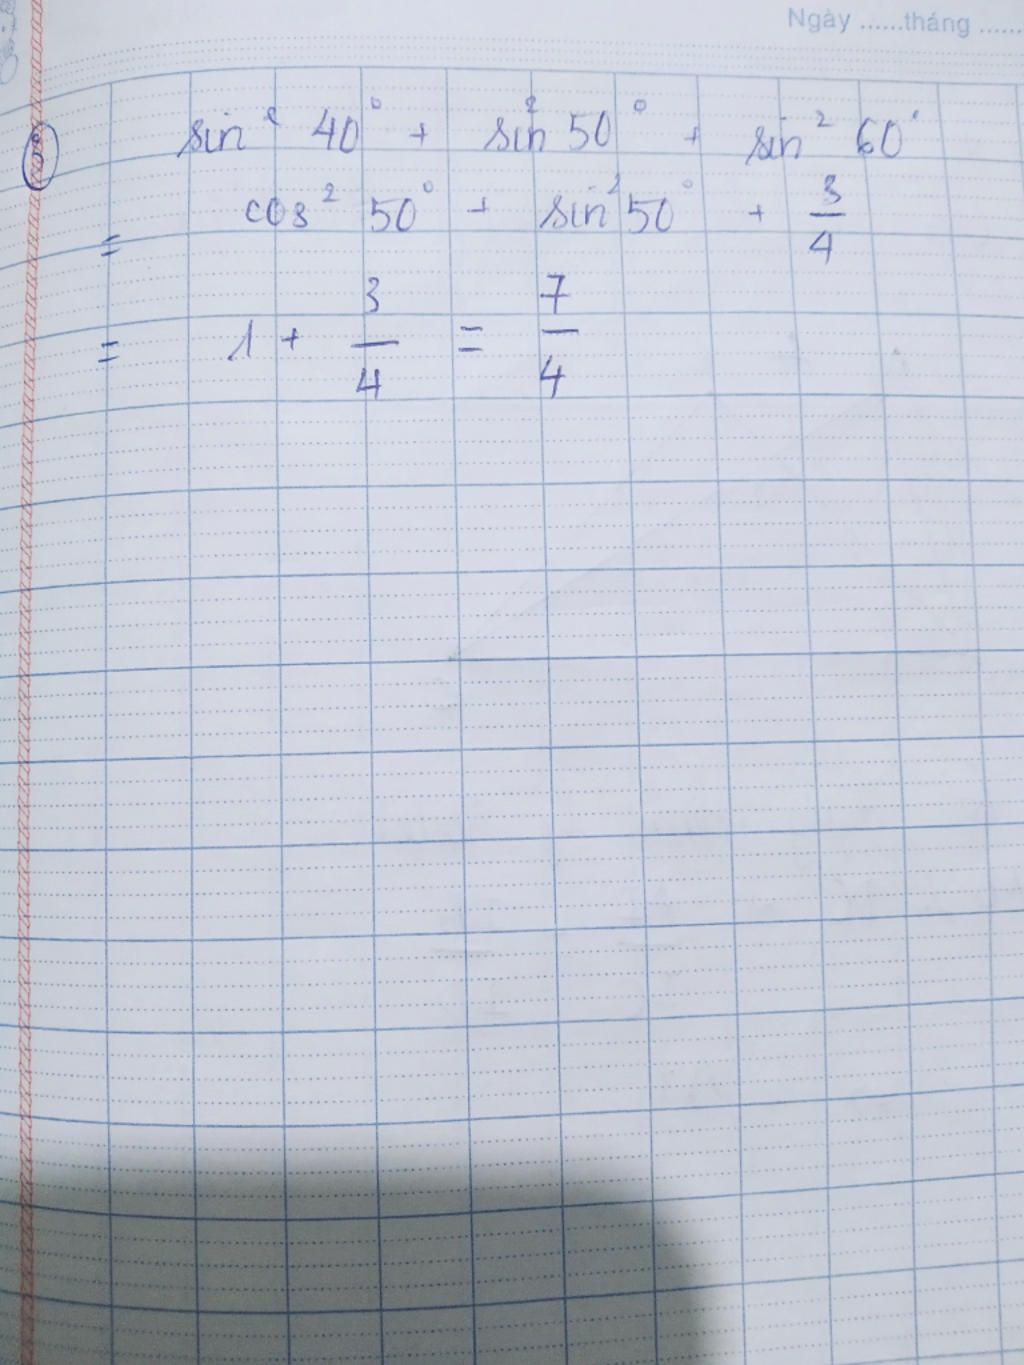 Ngày ......tháng ......
sin² 40° + sin² 50° + sin² 60°
= cos² 50° + sin² 50° + 3/4
= 1 + 3/4 = 7/4